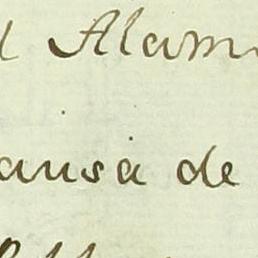 l Alam
ausa de